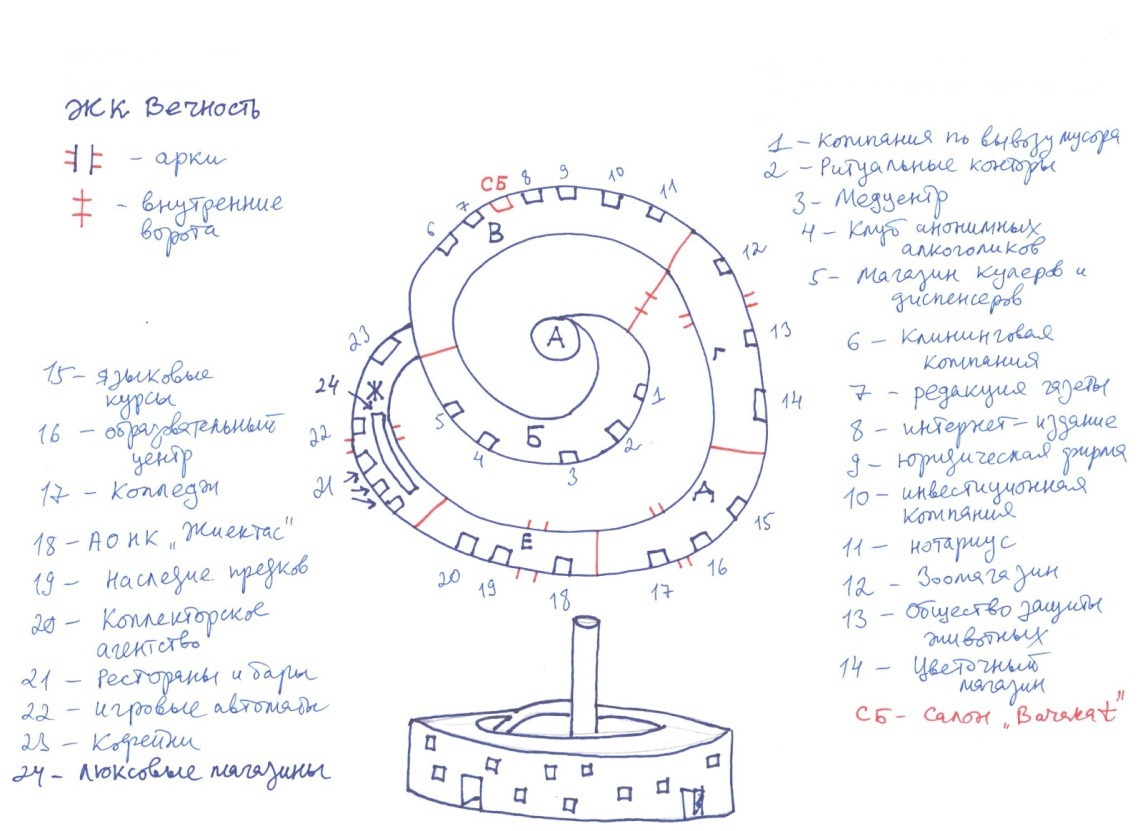 ЖК Вечность
- арки
- внутренние
ворота
1 - Компания по вывозу мусора
2 - Ритуальные конторы
3 - Медцентр
4 - Клуб анонимных
алкоголиков
5 - Магазин кулеров и
диспенсеров
6 - Клининговая
компания
7 - редакция газеты
8 - интернет-издание
9 - юридическая фирма
10 - инвестиционная
компания
11 - нотариус
12 - Зоомагазин
13 - Общество защиты
животных
14 - Цветочный
магазин
СБ - Салон „Barakat"
15 - языковые
курсы
16 - образовательный
центр
17 - Колледж
18 - АО НК „Жиектас"
19 - Наследие предков
20 - Коллекторское
агентство
21 - Рестораны и бары
22 - игровые автоматы
23 - Кофейни
24 - люксовые магазины
6
7
СБ
8
9
10
11
12
13
14
15
16
17
18
19
20
21
22
24
23
1
2
3
4
5
А
Б
В
Г
Д
Е
Ж